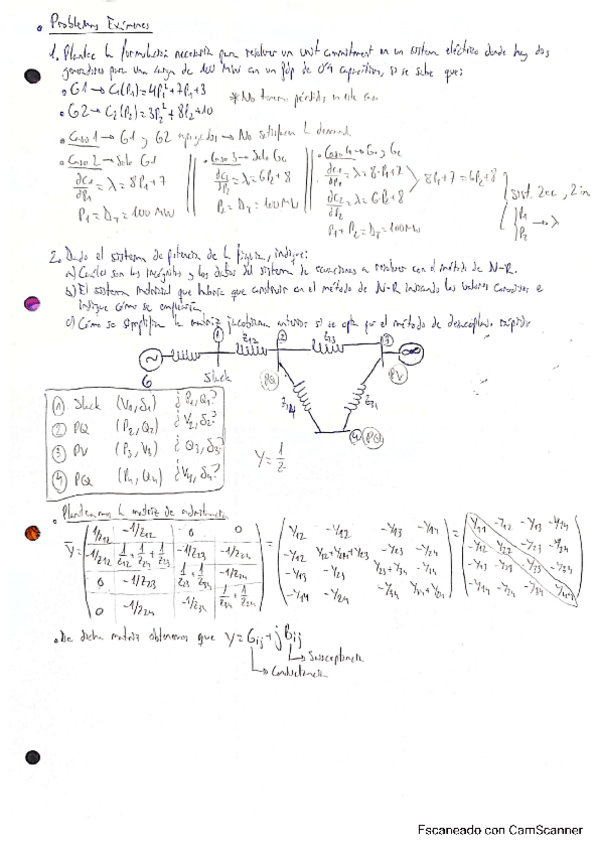 • Problemas Exámenes
1. Plantee la formulación necesaria para resolver un unit commitment en un sistema eléctrico donde hay dos
generadores para una carga de 100 MW con un fdp de 0'9 capacitivo, si se sabe que:
• G1 → C1(P1)=4P1²+7P1+3
* No tenemos pérdidas en este caso
• G2 → C2(P2)=3P2²+8P2+10
• Caso 1 → G1 y G2 apagados → No satisfacen la demanda
• Caso 2 → Solo G1
dC1/dP1 = λ = 8P1+7
P1 = DT = 100 MW
• Caso 3 → Solo G2
dC2/dP2 = λ = 6P2+8
P2 = DT = 100 MW
• Caso 4 → G1 y G2
dC1/dP1 = λ = 8·P1+7
dC2/dP2 = λ = 6·P2+8
8P1+7 = 6P2+8
P1 + P2 = DT = 100MW
Sist. 2ec, 2in
P1
P2 → λ
2. Dado el sistema de potencia de la figura, indique:
a) Cuáles son las incógnitas y los datos del sistema de ecuaciones a resolver con el método de N-R.
b) El sistema matricial que habría que construir en el método de N-R indicando los valores conocidos e
indique cómo se emplearía.
c) Cómo se simplifica la matriz jacobiana anterior si se opta por el método de desacoplado rápido
① Z12 ② Z23 ③
G Slack PQ PV
Z24 Z34
④ PQ
① Slack (V1, δ1) ¿P1, Q1?
② PQ (P2, Q2) ¿V2, δ2?
③ PV (P3, V3) ¿Q3, δ3?
④ PQ (P4, Q4) ¿V4, δ4?
Y = 1/Z
• Planteamos la matriz de admitancias
Y = ( 1/Z12 -1/Z12 0 0 ) = ( Y12 -Y12 -Y13 -Y14 ) = ( Y11 -Y12 -Y13 -Y14 )
( -1/Z12 1/Z12+1/Z24+1/Z23 -1/Z23 -1/Z24 ) ( -Y12 Y12+Y24+Y23 -Y23 -Y24 ) ( -Y12 Y22 -Y23 -Y24 )
( 0 -1/Z23 1/Z23+1/Z34 -1/Z34 ) ( -Y13 -Y23 Y23+Y34 -Y34 ) ( -Y13 -Y23 -Y33 -Y34 )
( 0 -1/Z24 -1/Z34 1/Z34+1/Z24 ) ( -Y14 -Y24 -Y34 Y34+Y24 ) ( -Y14 -Y24 -Y34 Y44 )
• De dicha matriz obtenemos que Y = Gij + jBij
→ Susceptancia
→ Conductancia
Escaneado con CamScanner